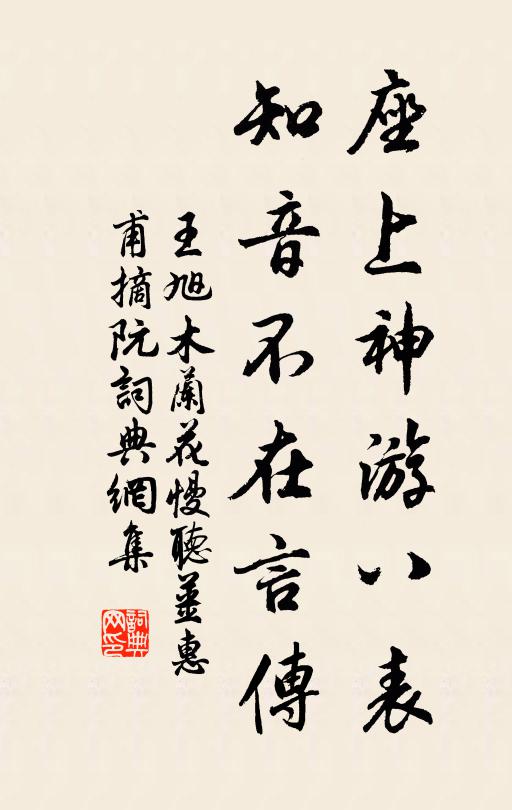 座上神游八表
知音不在言傳
王旭木蘭花慢聽薑惠
甫摘阮詞典網集
詞典
网印